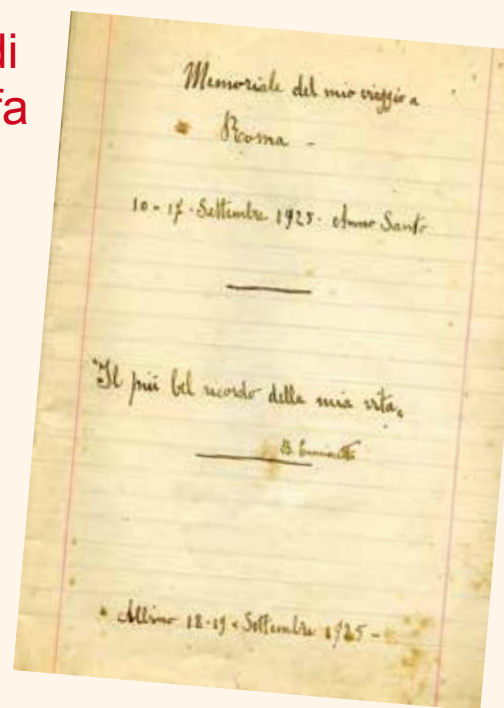 di
fa
Memoriale del mio viaggio a
Roma -
10 - 17 - Settembre 1925 - Anno Santo
"Il più bel ricordo della mia vita"
B.
Albino 18-19 - Settembre 1925 -